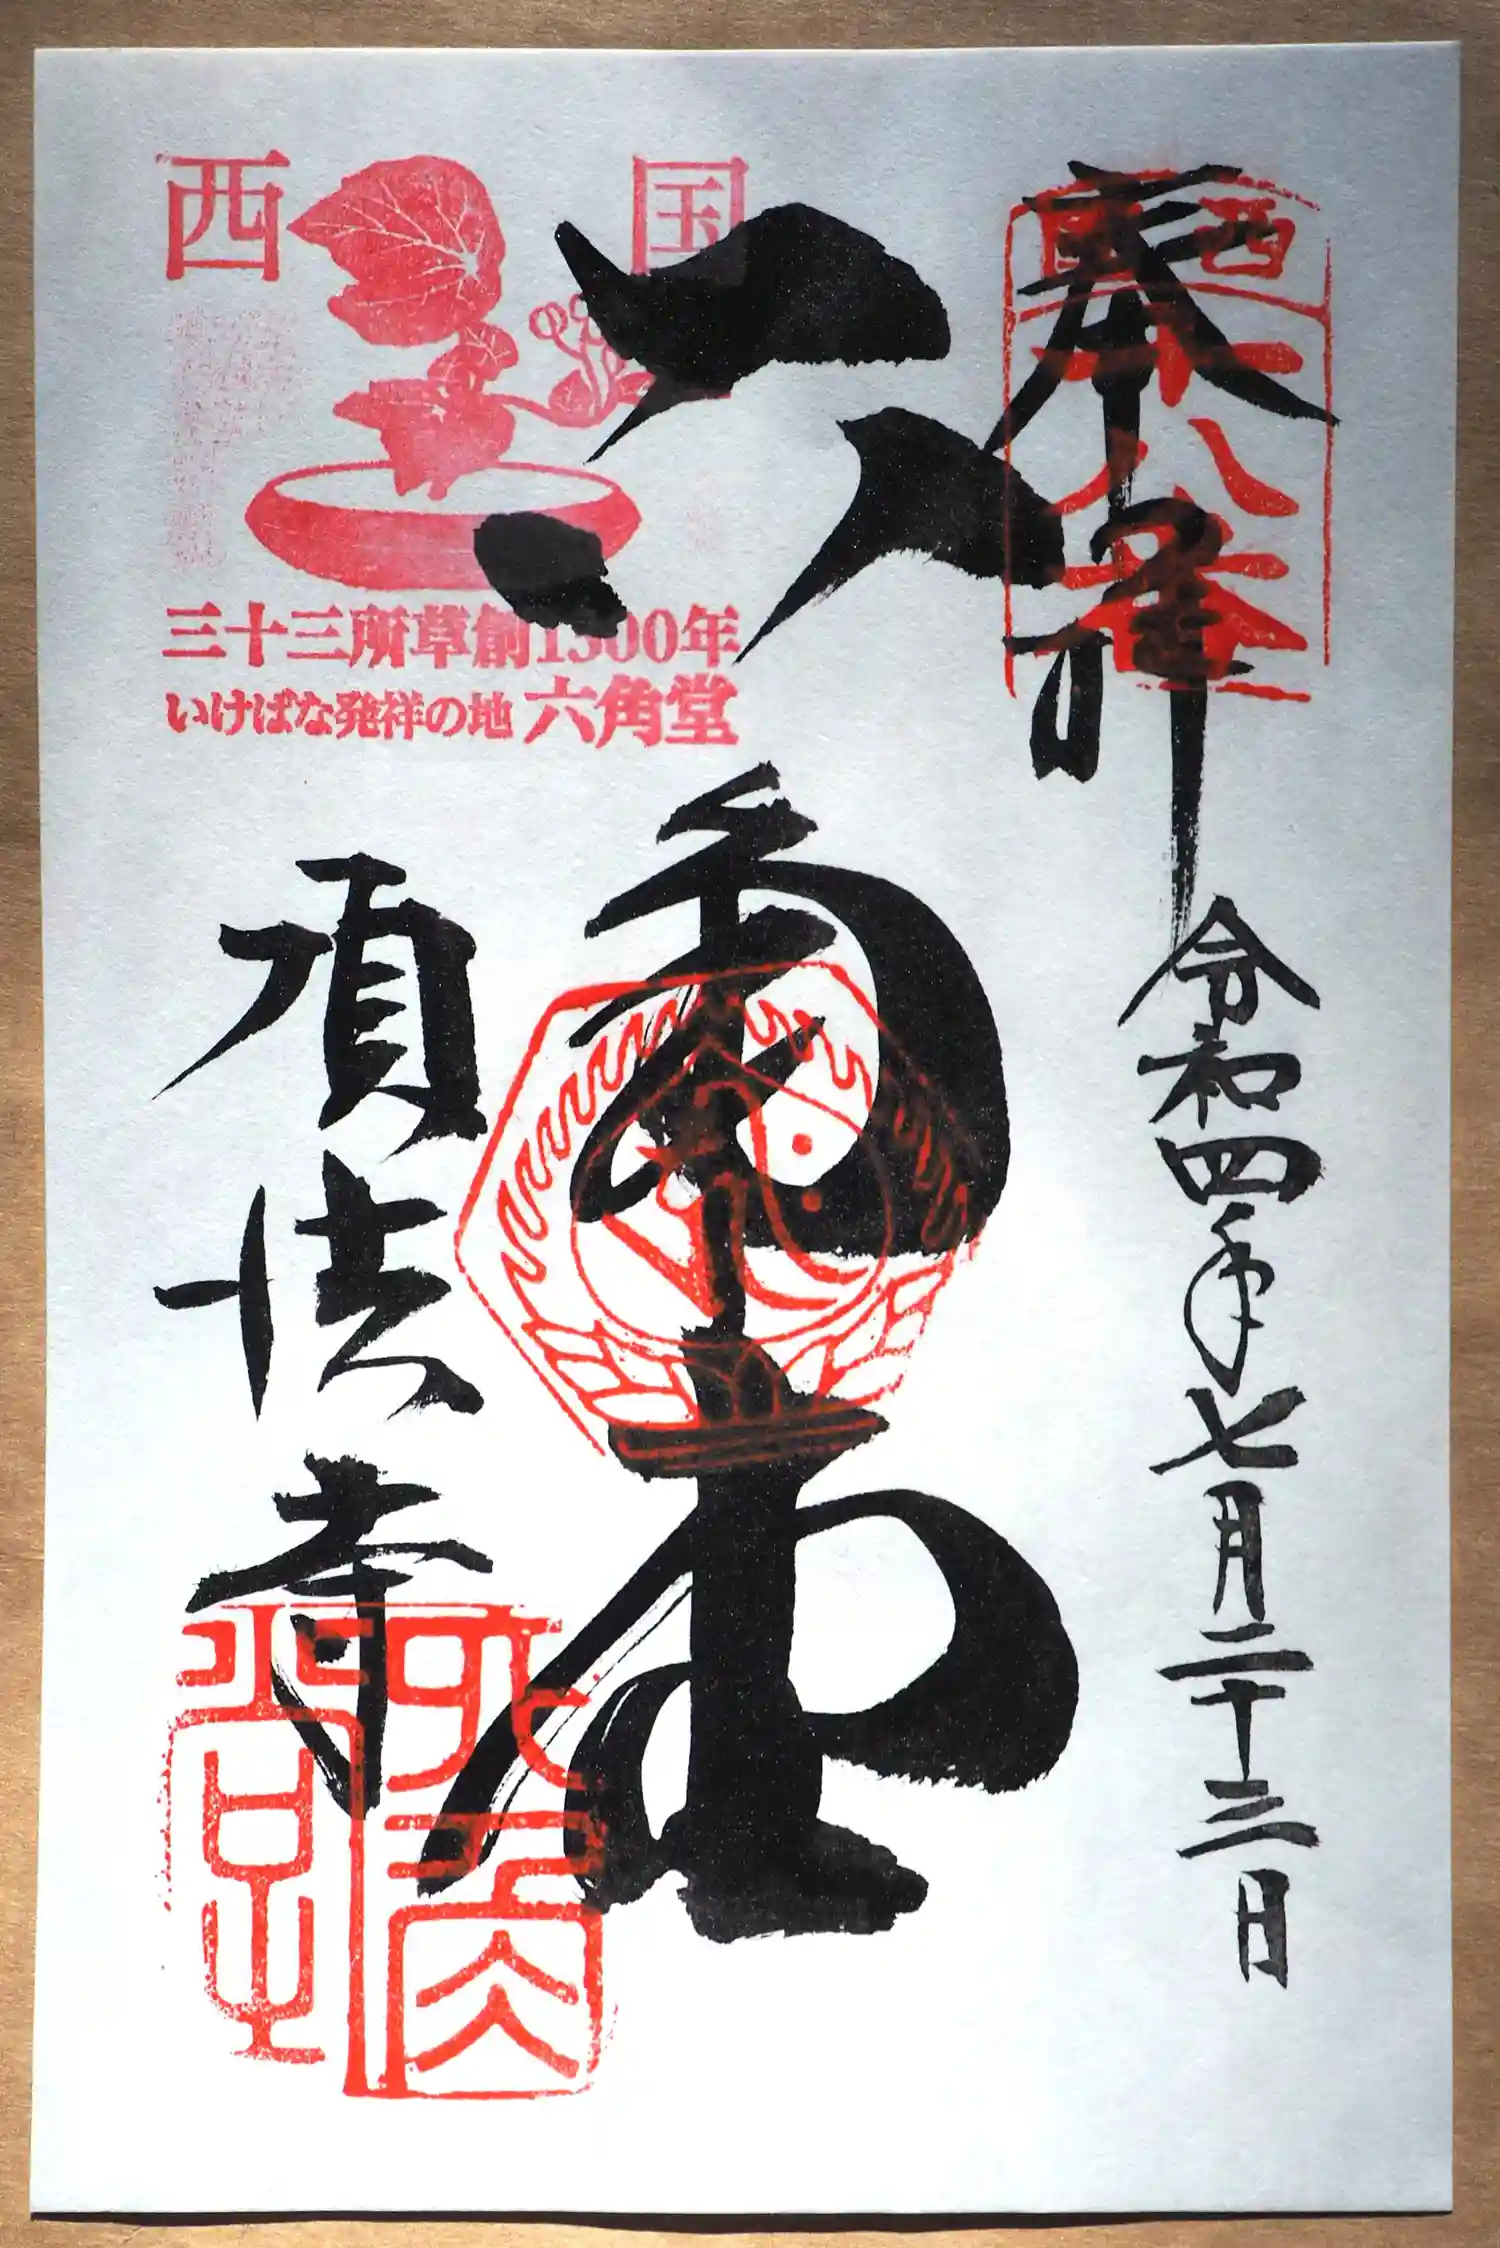 奉拝
令和四年七月二十三日
西国
十八番
六角堂
頂法寺
西国
三十三所草創1300年
いけばな発祥の地 六角堂